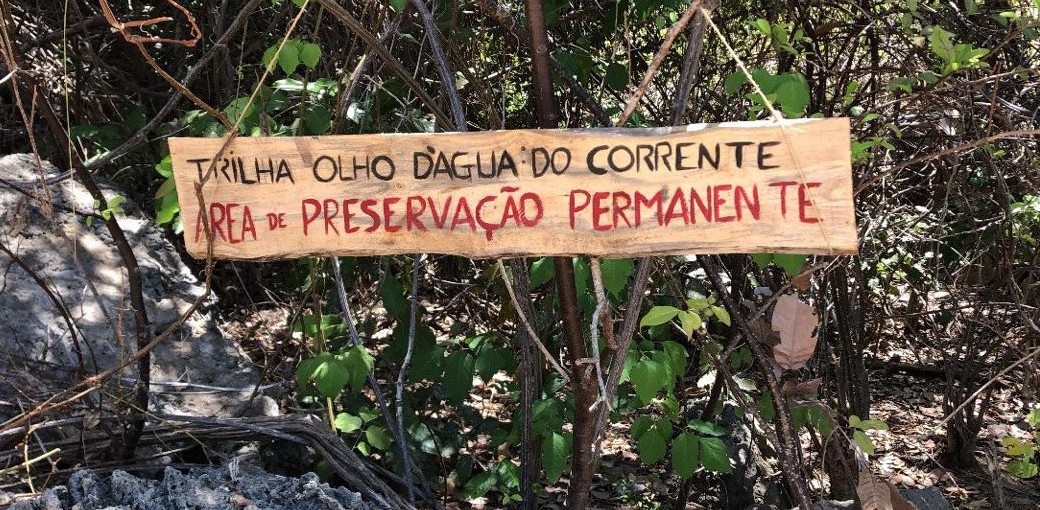 TRILHA OLHO D'AGUA DO CORRENTE
ÁREA DE PRESERVAÇÃO PERMANENTE